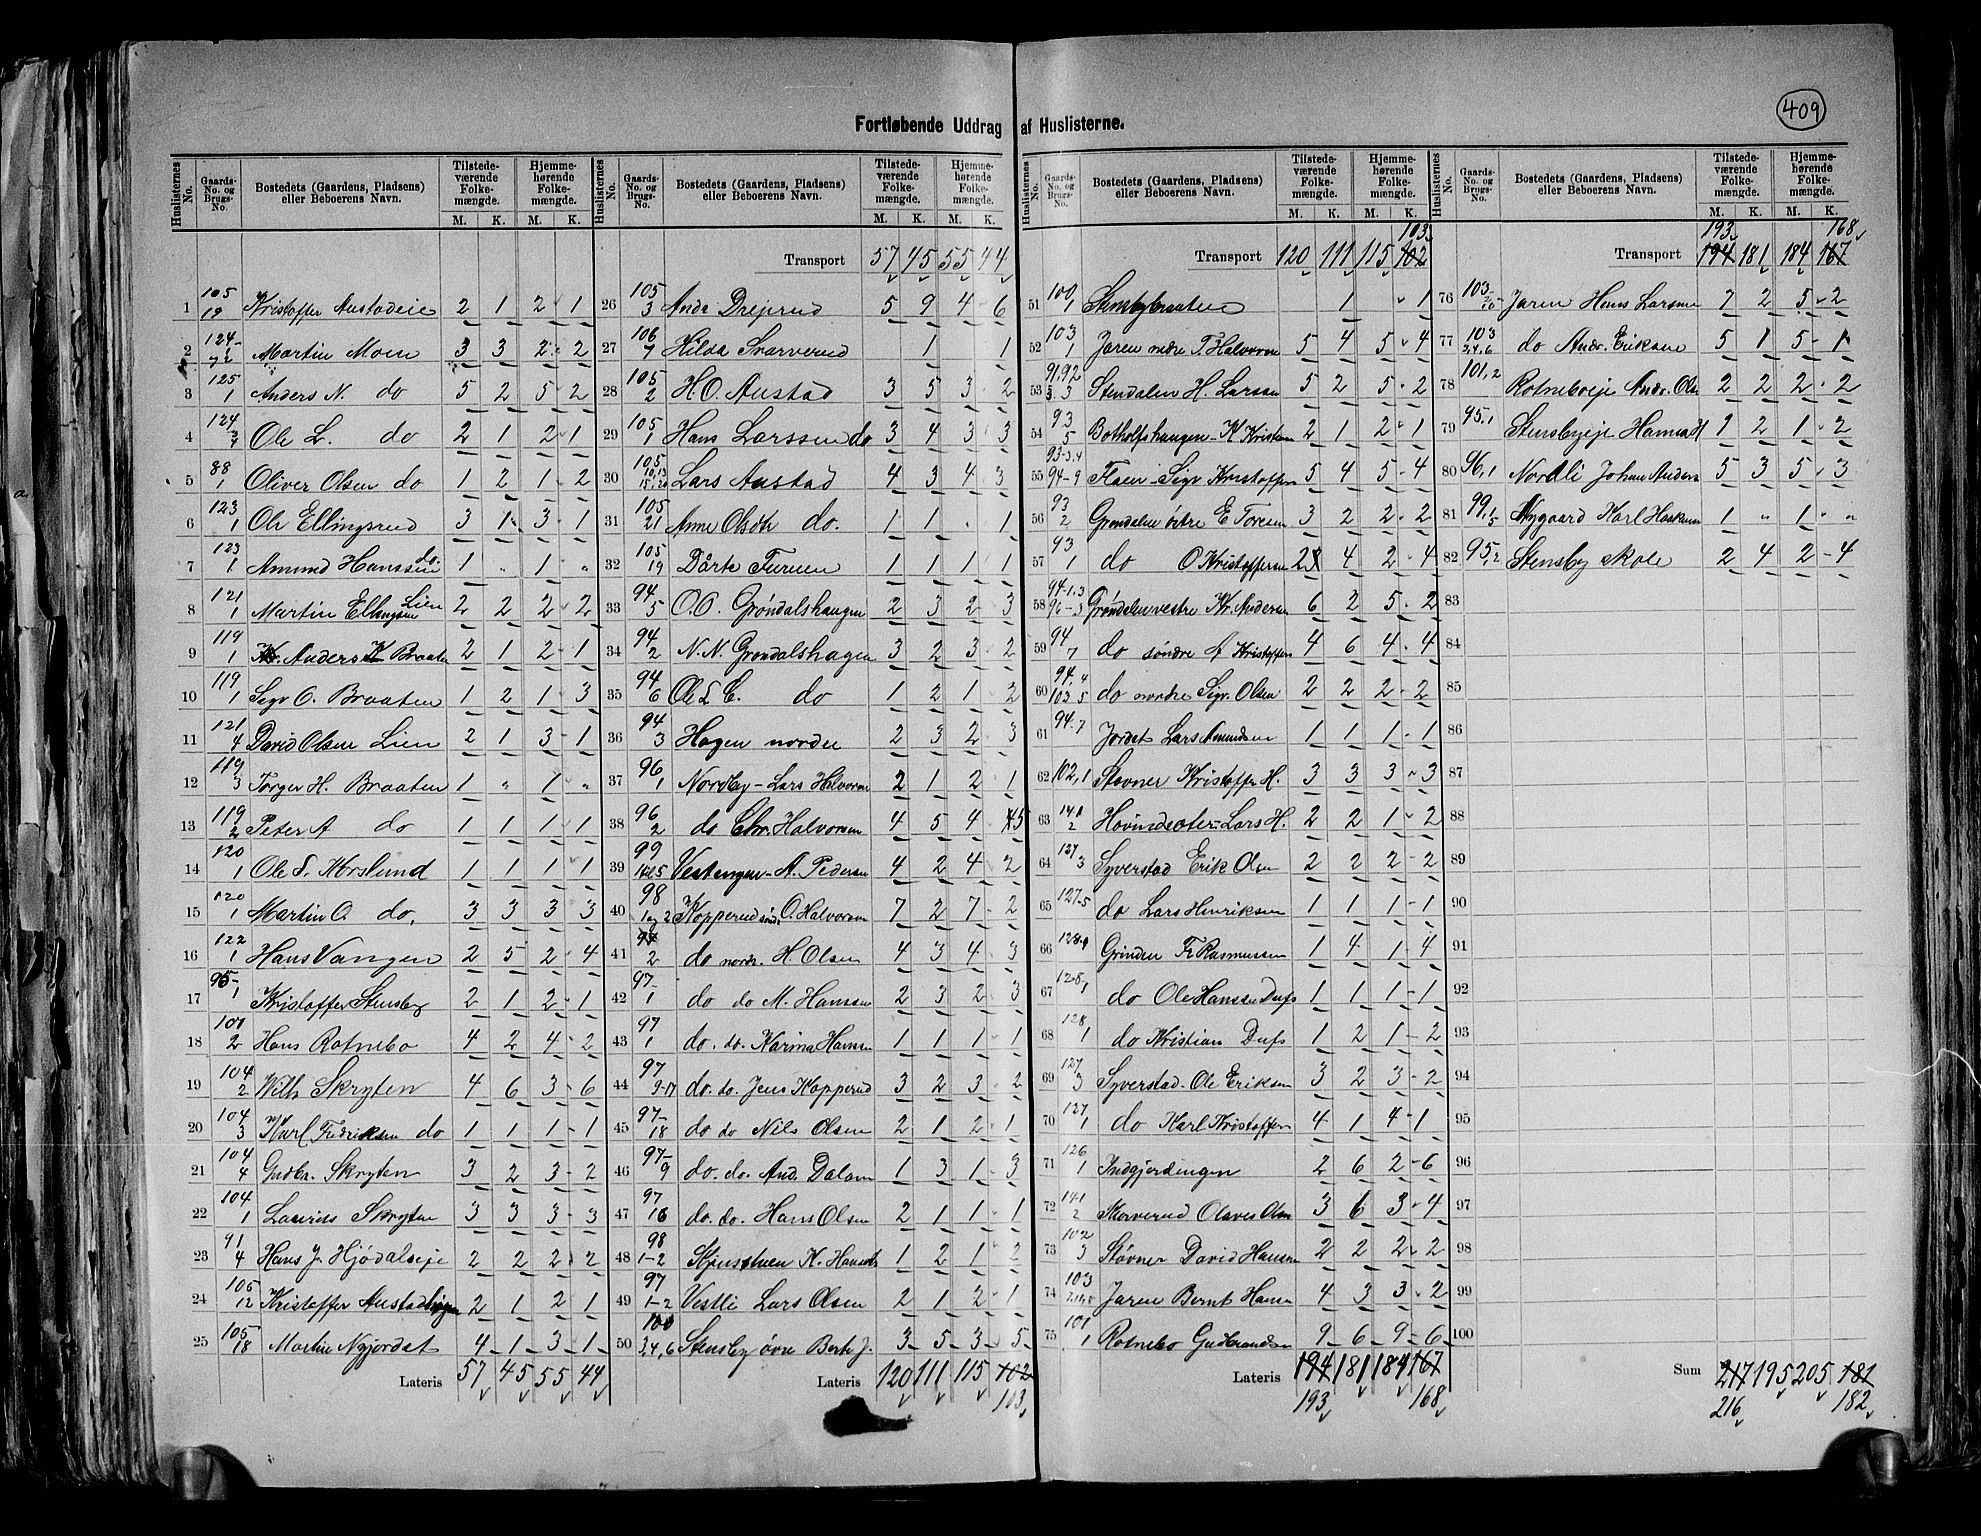 409
Fortløbende Uddrag af Huslisterne.
Huslisternes No. Gaards-No. og Brugs-No. Bostedets (Gaardens, Pladsens) eller Beboerens Navn. Tilstede-værende Folke-mængde. Hjemme-hørende Folke-mængde.
M. K. M. K.
1 105 19 Kristoffer Austadeie 2 1 2 1
2 124 Martin Moen 3 3 2 2
3 125 1 Anders N. do 5 2 5 2
4 124 Ole L. do 2 1 2 1
5 88 1 Oliver Olsen do 1 2 1 2
6 123 1 Ole Ellingsrud 3 1 3 1
7 123 1 Amund Hanssen do. 1 " 1 "
8 121 1 Martin Ellingsen Lien 2 2 2 2
9 119 1 Anders K Braaten 2 1 2 1
10 119 1 Sigv O. Braaten 1 2 1 3
11 121 4 David Olsen Lien 2 1 3 1
12 119 3 Torger H. Braaten 1 " 1 "
13 119 2 Peter A do 1 1 1 1
14 120 1 Ole S. Korslund 1 1 1 1
15 120 1 Martin O. do. 3 3 3 3
16 122 1 Hans Vangen 2 5 2 4
17 95 1 Kristoffer Stensby 2 1 2 1
18 100 2 Hans Rotnebo 4 2 4 2
19 104 2 Wilh. Skryten 4 6 3 6
20 104 3 Karl Fredriksen do 1 1 1 1
21 104 4 Gudbr. Skryten 3 2 3 2
22 104 1 Laurits Skryten 3 3 3 3
23 91 4 Hans J. Hjødalseje 2 2 2 2
24 105 12 Kristoffer Austadhagen 2 1 2 1
25 105 18 Martin Nyjordet 4 1 3 1
Lateris 57 45 55 44
Transport 57 45 55 44
26 105 3 Andr Drejerud 5 9 4 6
27 106 7 Hilda Svarverud 1 1
28 105 2 H. O. Austad 3 5 3 2
29 105 1 Hans Larssen do 3 4 3 3
30 105 10,13 15,20 Lars Austad 4 3 4 3
31 105 21 Anne Olsdtr do. 1 1 . 1
32 105 19 Dårte Furuen 1 1 1 1
33 94 5 O. O. Grøndalshaugen 2 3 2 3
34 94 2 N. N. Grøndalshagen 3 2 3 2
35 94 6 Ole L C. do 1 2 1 2
36 94 3 Hagen nordre 2 3 2 3
37 96 1 Nordby - Lars Halvorsen 2 1 2 1
38 96 2 do Chr. Halvorsen 4 5 4 5
39 99 Vestengen - A. Pedersen 4 2 4 2
40 98 1 og 2 Kopperud søndr O. Halvorsen 7 2 7 2
41 97 2 do nordr. H. Olsen 4 3 4 3
42 97 1 do do M. Hansen 2 3 2 3
43 97 1 do. do. Karina Hansen 1 1 1 1
44 97 9-17 do. do. Jens Kopperud 3 2 3 2
45 97 18 do do Nils Olsen 2 1 2 1
46 97 9 do. do. And. Dalen 1 3 1 3
47 97 16 do. do. Hans Olsen 2 1 1 1
48 98 1-2 Stjusstuen K. Hansdtr 1 2 1 2
49 97 1-2 Vestli Lars Olsen 2 1 2 1
50 100 3,4,6 Stensby øvre Berte J. 3 5 3 5
Lateris 120 111 115 102
103
Transport 120 111 115 102 103
51 100 1 Stensbybraaten 1 " 1
52 103 1 Jaren nedre T. Halvorsen 5 4 5 4
53 91,92 3,3 Stendalen H. Larsen 5 2 5 2
54 93 5 Botholfshaugen - K Kristens 2 1 2 1
55 93-3,4 94-9 Flaen - Sigv Kristoffers 5 4 5 4
56 93 2 Grøndalen østre E Toresen 3 2 2 2
57 93 1 do O Kristoffersen 2 4 2 4
58 94-1.3 96-3 Grøndalen vestre Kr. Andersen 6 2 5 2
59 94 7 do søndre A Kristoffers 4 6 4 4
60 94,4 103,5 do nordre Sigv. Olsen 2 2 2 2
61 94-7 Jordet Lars Amundsen 1 1 1 1
62 102,1 Stovner Kristoffer H. 3 3 3 3
63 141 2 Hovindsæter - Lars H. 2 2 1 2
64 127 3 Syverstad Erik Olsen 2 2 2 2
65 127-5 do Lars Henriksen 1 1 1 1
66 128-1 Grinden Fr. Rasmussen 1 4 1 4
67 128,1 do Ole Hanssen Dufs 1 1 1 1
68 128 1 do Kristian Dufs 1 2 1 2
69 127 3 Syverstad - Ole Eriksen 3 2 3 2
70 127 1 do Karl Kristoffers 4 1 4 1
71 126 1 Indgjerdingen 2 6 2 6
72 141 2 Skorverud Olaves Olsen 3 6 3 4
73 102 3 Støvner David Hansen 2 2 2 2
74 103 Jaren Bernt Hansen 4 3 3 2
75 101 1 Rotnebo Gudbrandsen 9 6 9 6
Lateris 194 181 184 167
193 168
Transport 194 181 184 167
193 168
76 103 Jaren Hans Larsen 7 2 5 2
77 103 3,4,6 do Andr. Eriksen 5 1 5 1
78 101,2 Rotneboeje Andr. Ols 2 2 2 2
79 95,1 Stensbyeje Hanna H 1 2 1 2
80 96,1 Nordli Johan Anders 5 3 5 3
81 99,1 5 Nygaard Karl Haakens 1 " 1 "
82 95,2 Stensby Skole 2 4 2 4
83
84
85
86
87
88
89
90
91
92
93
94
95
96
97
98
99
100
Sum 217 195 205 181
216 182